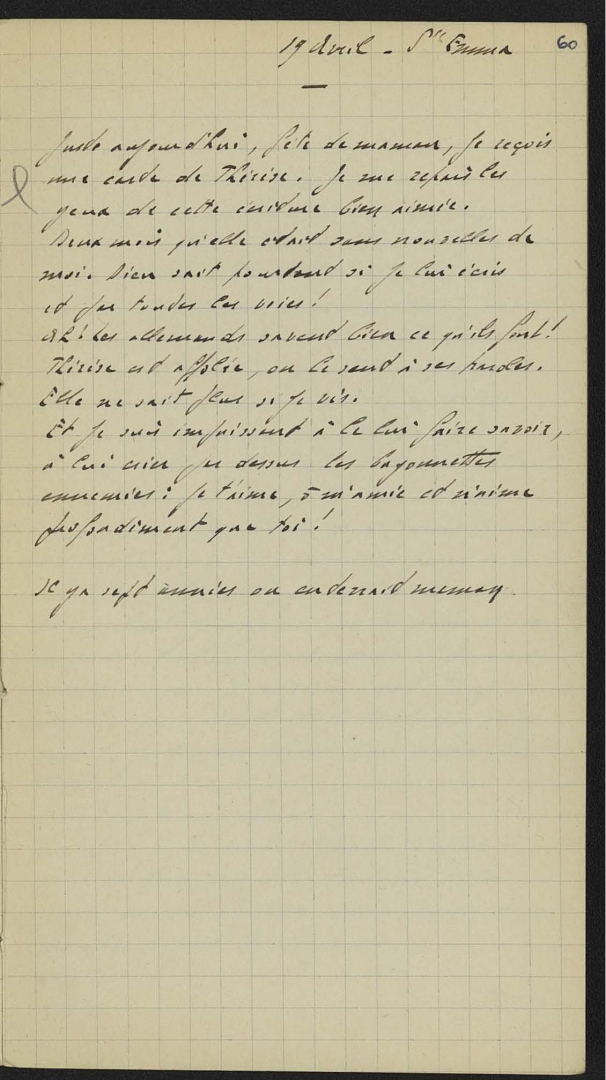 19 Avril - Ste Emma
60
Juste aujourd'hui, fête de maman, je reçois
une carte de Thérèse. Je me repais les
yeux de cette écriture bien aimée.
Deux mois qu'elle était sans nouvelles de
moi. Dieu sait pourtant si je lui écris
et par toutes les voies!
Ah! les allemands savent bien ce qu'ils font!
Thérèse est affolée, on le sent à ses paroles.
Elle ne sait plus si je vis.
Et je suis impuissant à le lui faire savoir,
à lui crier par dessus les bayonnettes
ennemies: je t'aime, ô m'amie et n'aime
profondément que toi!
Il y a sept années on enterrait maman